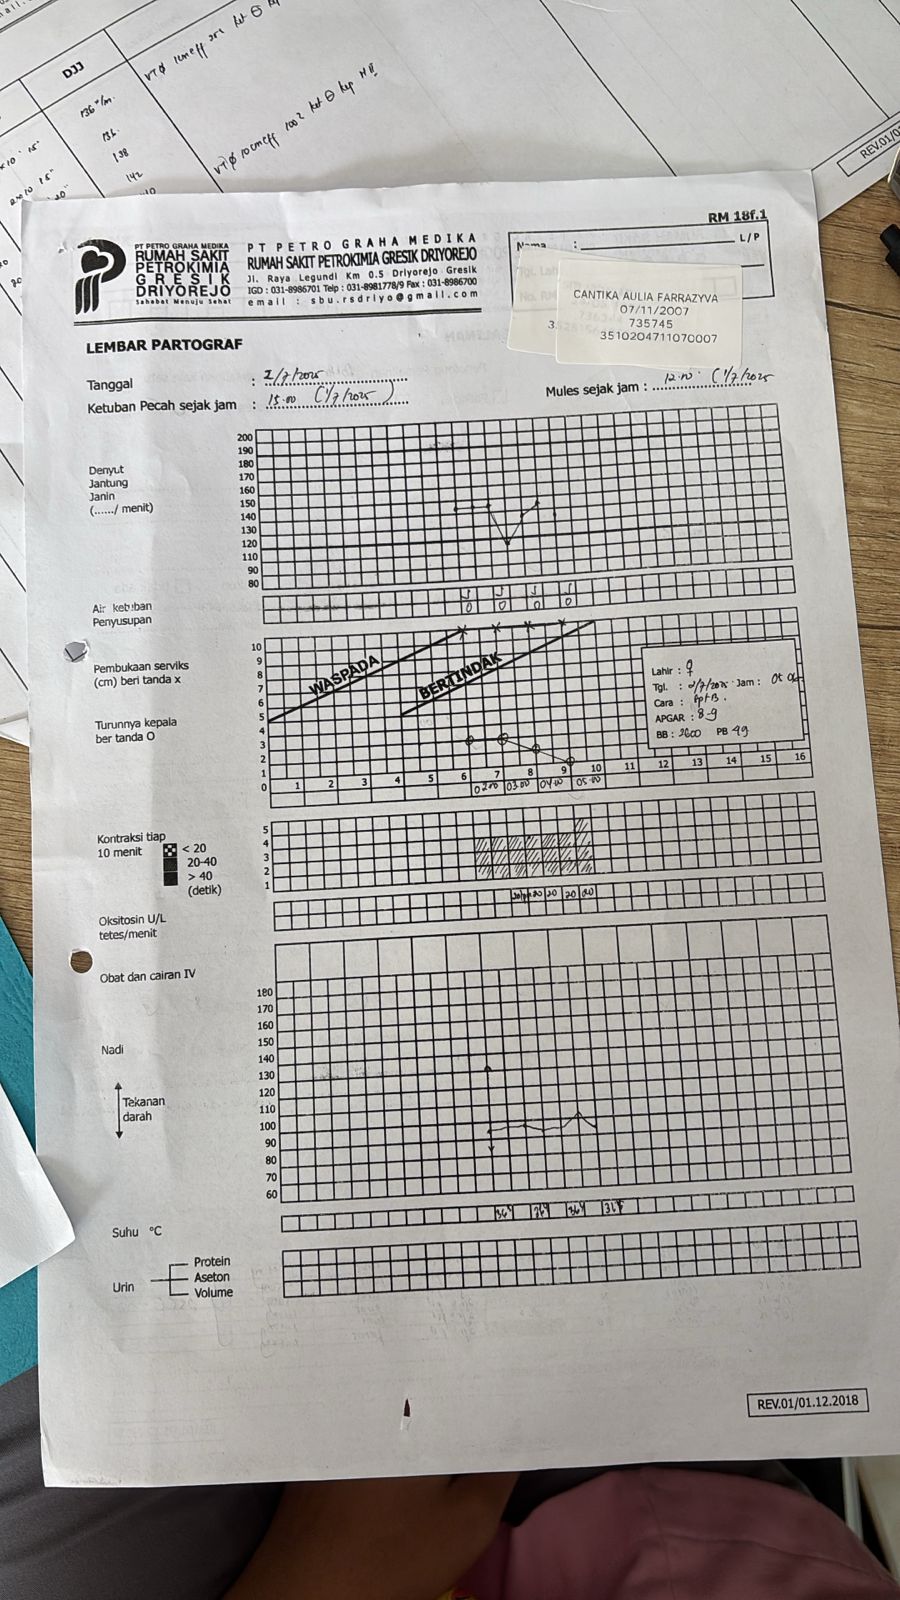 DJJ
136 x/m
136
138
142
VT Ø 10cm eff 100% ket ⊖ kep H III
REV.01/0
RM 18f.1
PT PETRO GRAHA MEDIKA
RUMAH SAKIT
PETROKIMIA
GRESIK
DRIYOREJO
Sahabat Menuju Sehat
PT PETRO GRAHA MEDIKA
RUMAH SAKIT PETROKIMIA GRESIK DRIYOREJO
Jl. Raya Legundi Km 0.5 Driyorejo Gresik
IGD : 031-8986701 Telp : 031-8981778/9 Fax : 031-8986700
email : sbu.rsdriyo@gmail.com
Nama : L/P
Tgl. Lah
No. RM
CANTIKA AULIA FARRAZYVA
07/11/2007
735745
3510204711070007
LEMBAR PARTOGRAF
Tanggal : 2/7/2025
Ketuban Pecah sejak jam : 15.00 (1/7/2025)
Mules sejak jam : 12.00 (1/7/2025
Denyut
Jantung
Janin
(....../ menit)
200
190
180
170
160
150
140
130
120
110
90
80
Air ketuban
Penyusupan
J J J J
0 0 0 0
Pembukaan serviks
(cm) beri tanda x
Turunnya kepala
ber tanda O
10
9
8
7
6
5
4
3
2
1
0
WASPADA
BERTINDAK
Lahir : ♀
Tgl. : 2/7/2025 Jam :
Cara :
APGAR : 8-9
BB : 2600 PB 49
1 2 3 4 5 6 7 8 9 10 11 12 13 14 15 16
02.00 03.00 04.00 05.00
Kontraksi tiap
10 menit
< 20
20-40
> 40
(detik)
5
4
3
2
1
Oksitosin U/L
tetes/menit
20 20 20 20
Obat dan cairan IV
Nadi
Tekanan
darah
180
170
160
150
140
130
120
110
100
90
80
70
60
Suhu °C
36⁴ 36⁴ 36⁴
Urin
Protein
Aseton
Volume
REV.01/01.12.2018